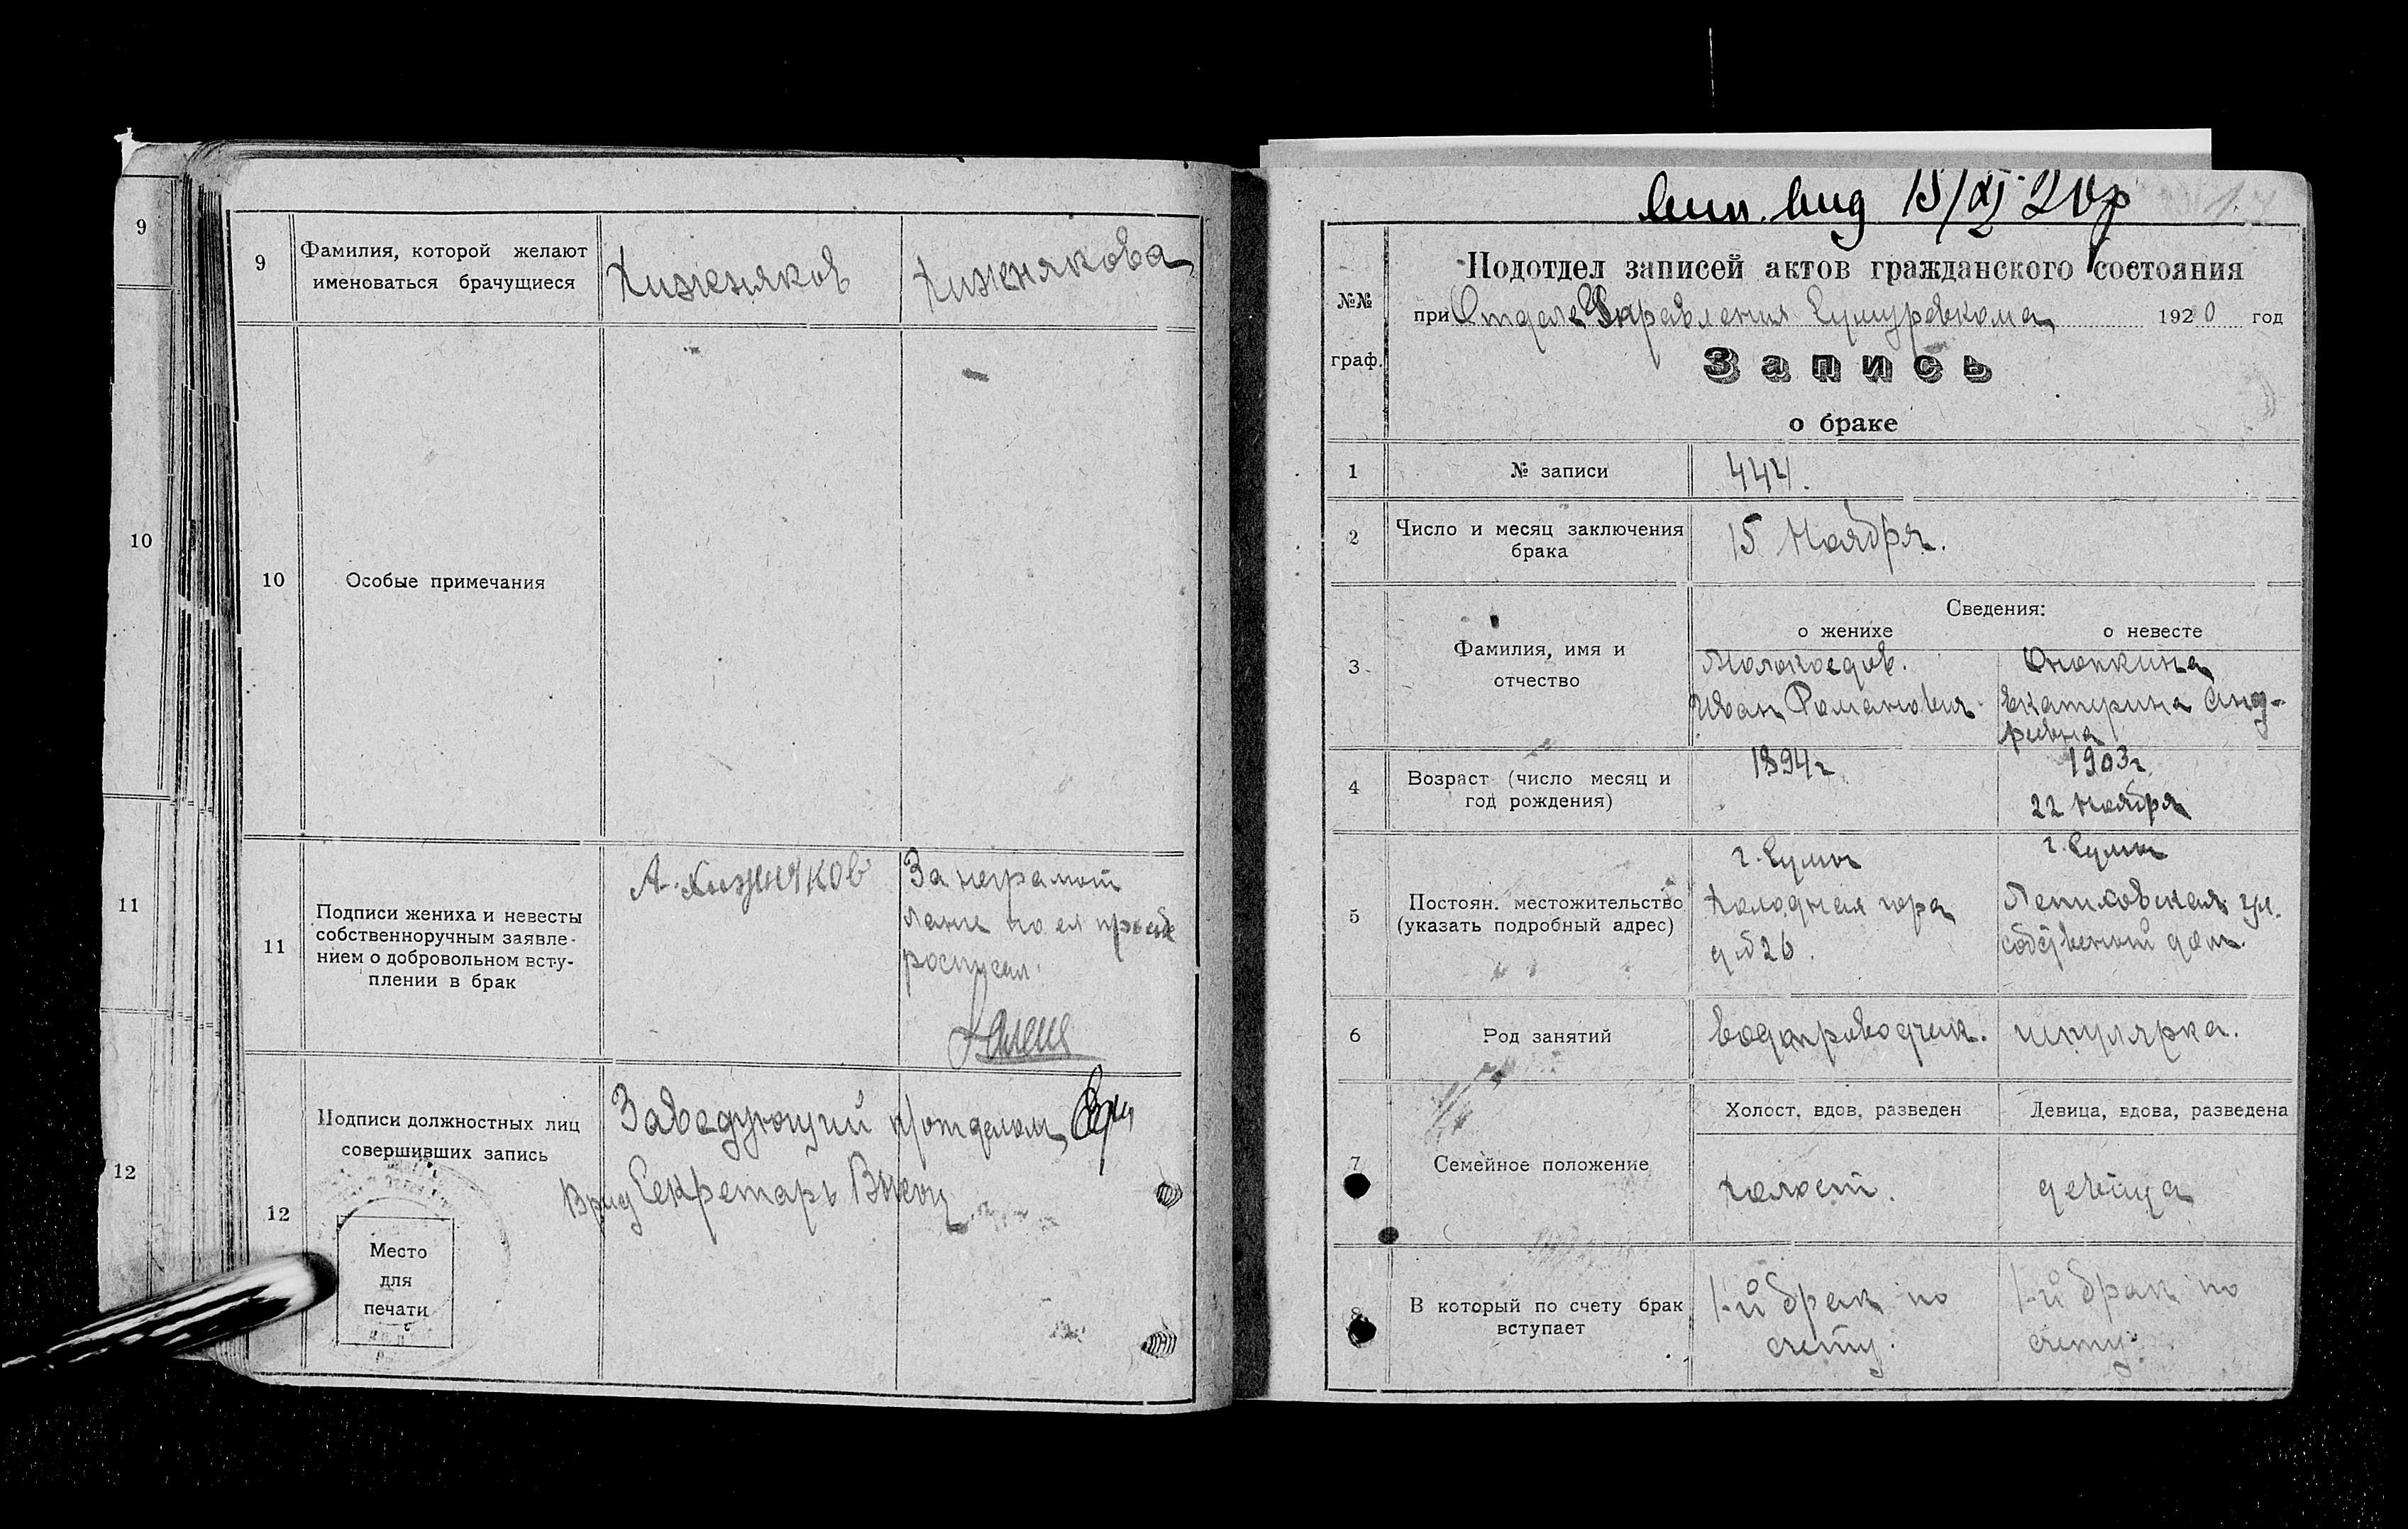 9
10
11
12
9
Фамилия, которой желают
именоваться брачущиеся
Хиженяков
Хиженякова
10
Особые примечания
11
Подписи жениха и невесты
собственноручным заявле-
нием о добровольном всту-
плении в брак
А. Хиженяков
За неграмот
по ея прозб
росписал
12
Подписи должностных лиц
совершивших запись
Заведующий п/отделом
Врид Секретарь
Место
для
печати
вид 15/XI 20г
№№
граф.
Подотдел записей актов гражданского состояния
при Отделе Управления Сумуревкома 1920 год
Запись
о браке
1
№ записи
444.
2
Число и месяц заключения
брака
15 Ноября.
Сведения:
о женихе
о невесте
3
Фамилия, имя и
отчество
Молокоедов.
Иван Романович.
Екатерина Анд-
реевна
4
Возраст (число месяц и
год рождения)
1894г
1903г
22 Ноября
5
Постоян. местожительство
(указать подробный адрес)
г. Сумы
Холодная гора
д №26.
г. Сумы
ул.
собственый дом.
6
Род занятий
водопроводчик.
шпулярка.
7
Семейное положение
Холост, вдов, разведен
Девица, вдова, разведена
холост.
девица
8
В который по счету брак
вступает
1-й брак по
счету.
1-й брак по
счету.